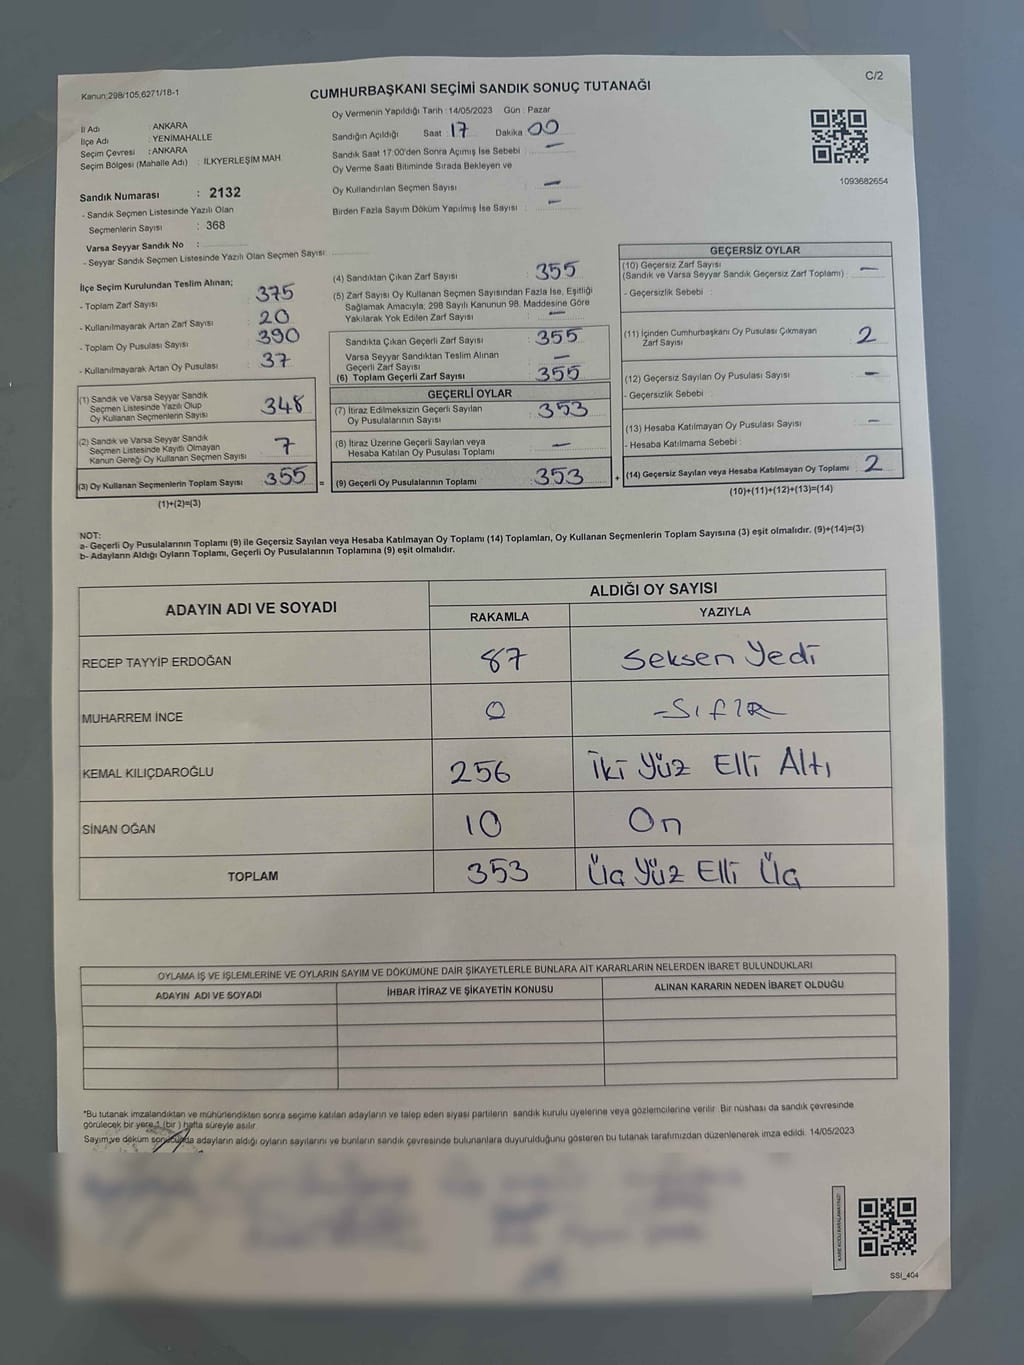 Kanun:298/105,6271/18-1
C/2
CUMHURBAŞKANI SEÇİMİ SANDIK SONUÇ TUTANAĞI
Oy Vermenin Yapıldığı Tarih : 14/05/2023 Gün : Pazar
Sandığın Açıldığı Saat : 17 Dakika : 00
Sandık Saat 17:00'den Sonra Açımış İse Sebebi : —
Oy Verme Saati Bitiminde Sırada Bekleyen ve
Oy Kullandırılan Seçmen Sayısı : —
Birden Fazla Sayım Döküm Yapılmış İse Sayısı : —
İl Adı : ANKARA
İlçe Adı : YENİMAHALLE
Seçim Çevresi : ANKARA
Seçim Bölgesi (Mahalle Adı) : İLKYERLEŞİM MAH
1093682654
Sandık Numarası : 2132
- Sandık Seçmen Listesinde Yazılı Olan
Seçmenlerin Sayısı : 368
Varsa Seyyar Sandık No :
- Seyyar Sandık Seçmen Listesinde Yazılı Olan Seçmen Sayısı:
İlçe Seçim Kurulundan Teslim Alınan;
- Toplam Zarf Sayısı : 375
- Kullanılmayarak Artan Zarf Sayısı : 20
- Toplam Oy Pusulası Sayısı : 390
- Kullanılmayarak Artan Oy Pusulası : 37
(1) Sandık ve Varsa Seyyar Sandık
Seçmen Listesinde Yazılı Olup
Oy Kullanan Seçmenlerin Sayısı : 348
(2) Sandık ve Varsa Seyyar Sandık
Seçmen Listesinde Kayıtlı Olmayan
Kanun Gereği Oy Kullanan Seçmen Sayısı : 7
(3) Oy Kullanan Seçmenlerin Toplam Sayısı : 355 =
(1)+(2)=(3)
(4) Sandıktan Çıkan Zarf Sayısı : 355
(5) Zarf Sayısı Oy Kullanan Seçmen Sayısından Fazla İse, Eşitliği
Sağlamak Amacıyla; 298 Sayılı Kanunun 98. Maddesine Göre
Yakılarak Yok Edilen Zarf Sayısı : —
Sandıkta Çıkan Geçerli Zarf Sayısı : 355
Varsa Seyyar Sandıktan Teslim Alınan
Geçerli Zarf Sayısı : —
(6) Toplam Geçerli Zarf Sayısı : 355
GEÇERLİ OYLAR
(7) İtiraz Edilmeksizin Geçerli Sayılan
Oy Pusulalarının Sayısı : 353
(8) İtiraz Üzerine Geçerli Sayılan veya
Hesaba Katılan Oy Pusulası Toplamı : —
(9) Geçerli Oy Pusulalarının Toplamı : 353 +
GEÇERSİZ OYLAR
(10) Geçersiz Zarf Sayısı
(Sandık ve Varsa Seyyar Sandık Geçersiz Zarf Toplamı) : —
- Geçersizlik Sebebi :
(11) İçinden Cumhurbaşkanı Oy Pusulası Çıkmayan
Zarf Sayısı : 2
(12) Geçersiz Sayılan Oy Pusulası Sayısı : —
- Geçersizlik Sebebi :
(13) Hesaba Katılmayan Oy Pusulası Sayısı : —
- Hesaba Katılmama Sebebi :
(14) Geçersiz Sayılan veya Hesaba Katılmayan Oy Toplamı : 2
(10)+(11)+(12)+(13)=(14)
NOT:
a- Geçerli Oy Pusulalarının Toplamı (9) ile Geçersiz Sayılan veya Hesaba Katılmayan Oy Toplamı (14) Toplamları, Oy Kullanan Seçmenlerin Toplam Sayısına (3) eşit olmalıdır. (9)+(14)=(3)
b- Adayların Aldığı Oyların Toplamı, Geçerli Oy Pusulalarının Toplamına (9) eşit olmalıdır.
ADAYIN ADI VE SOYADI ALDIĞI OY SAYISI
RAKAMLA YAZIYLA
RECEP TAYYİP ERDOĞAN 87 Seksen Yedi
MUHARREM İNCE 0 -Sıfır
KEMAL KILIÇDAROĞLU 256 İki Yüz Elli Altı
SİNAN OĞAN 10 On
TOPLAM 353 Üç Yüz Elli Üç
OYLAMA İŞ VE İŞLEMLERİNE VE OYLARIN SAYIM VE DÖKÜMÜNE DAİR ŞİKAYETLERLE BUNLARA AİT KARARLARIN NELERDEN İBARET BULUNDUKLARI
ADAYIN ADI VE SOYADI İHBAR İTİRAZ VE ŞİKAYETİN KONUSU ALINAN KARARIN NEDEN İBARET OLDUĞU
*Bu tutanak imzalandıktan ve mühürlendikten sonra seçime katılan adayların ve talep eden siyasi partilerin sandık kurulu üyelerine veya gözlemcilerine verilir. Bir nüshası da sandık çevresinde
görülecek bir yere 1 (bir) hafta süreyle asılır.
Sayım ve döküm sonucunda adayların aldığı oyların sayılarını ve bunların sandık çevresinde bulunanlara duyurulduğunu gösteren bu tutanak tarafımızdan düzenlenerek imza edildi. 14/05/2023
SSI_404